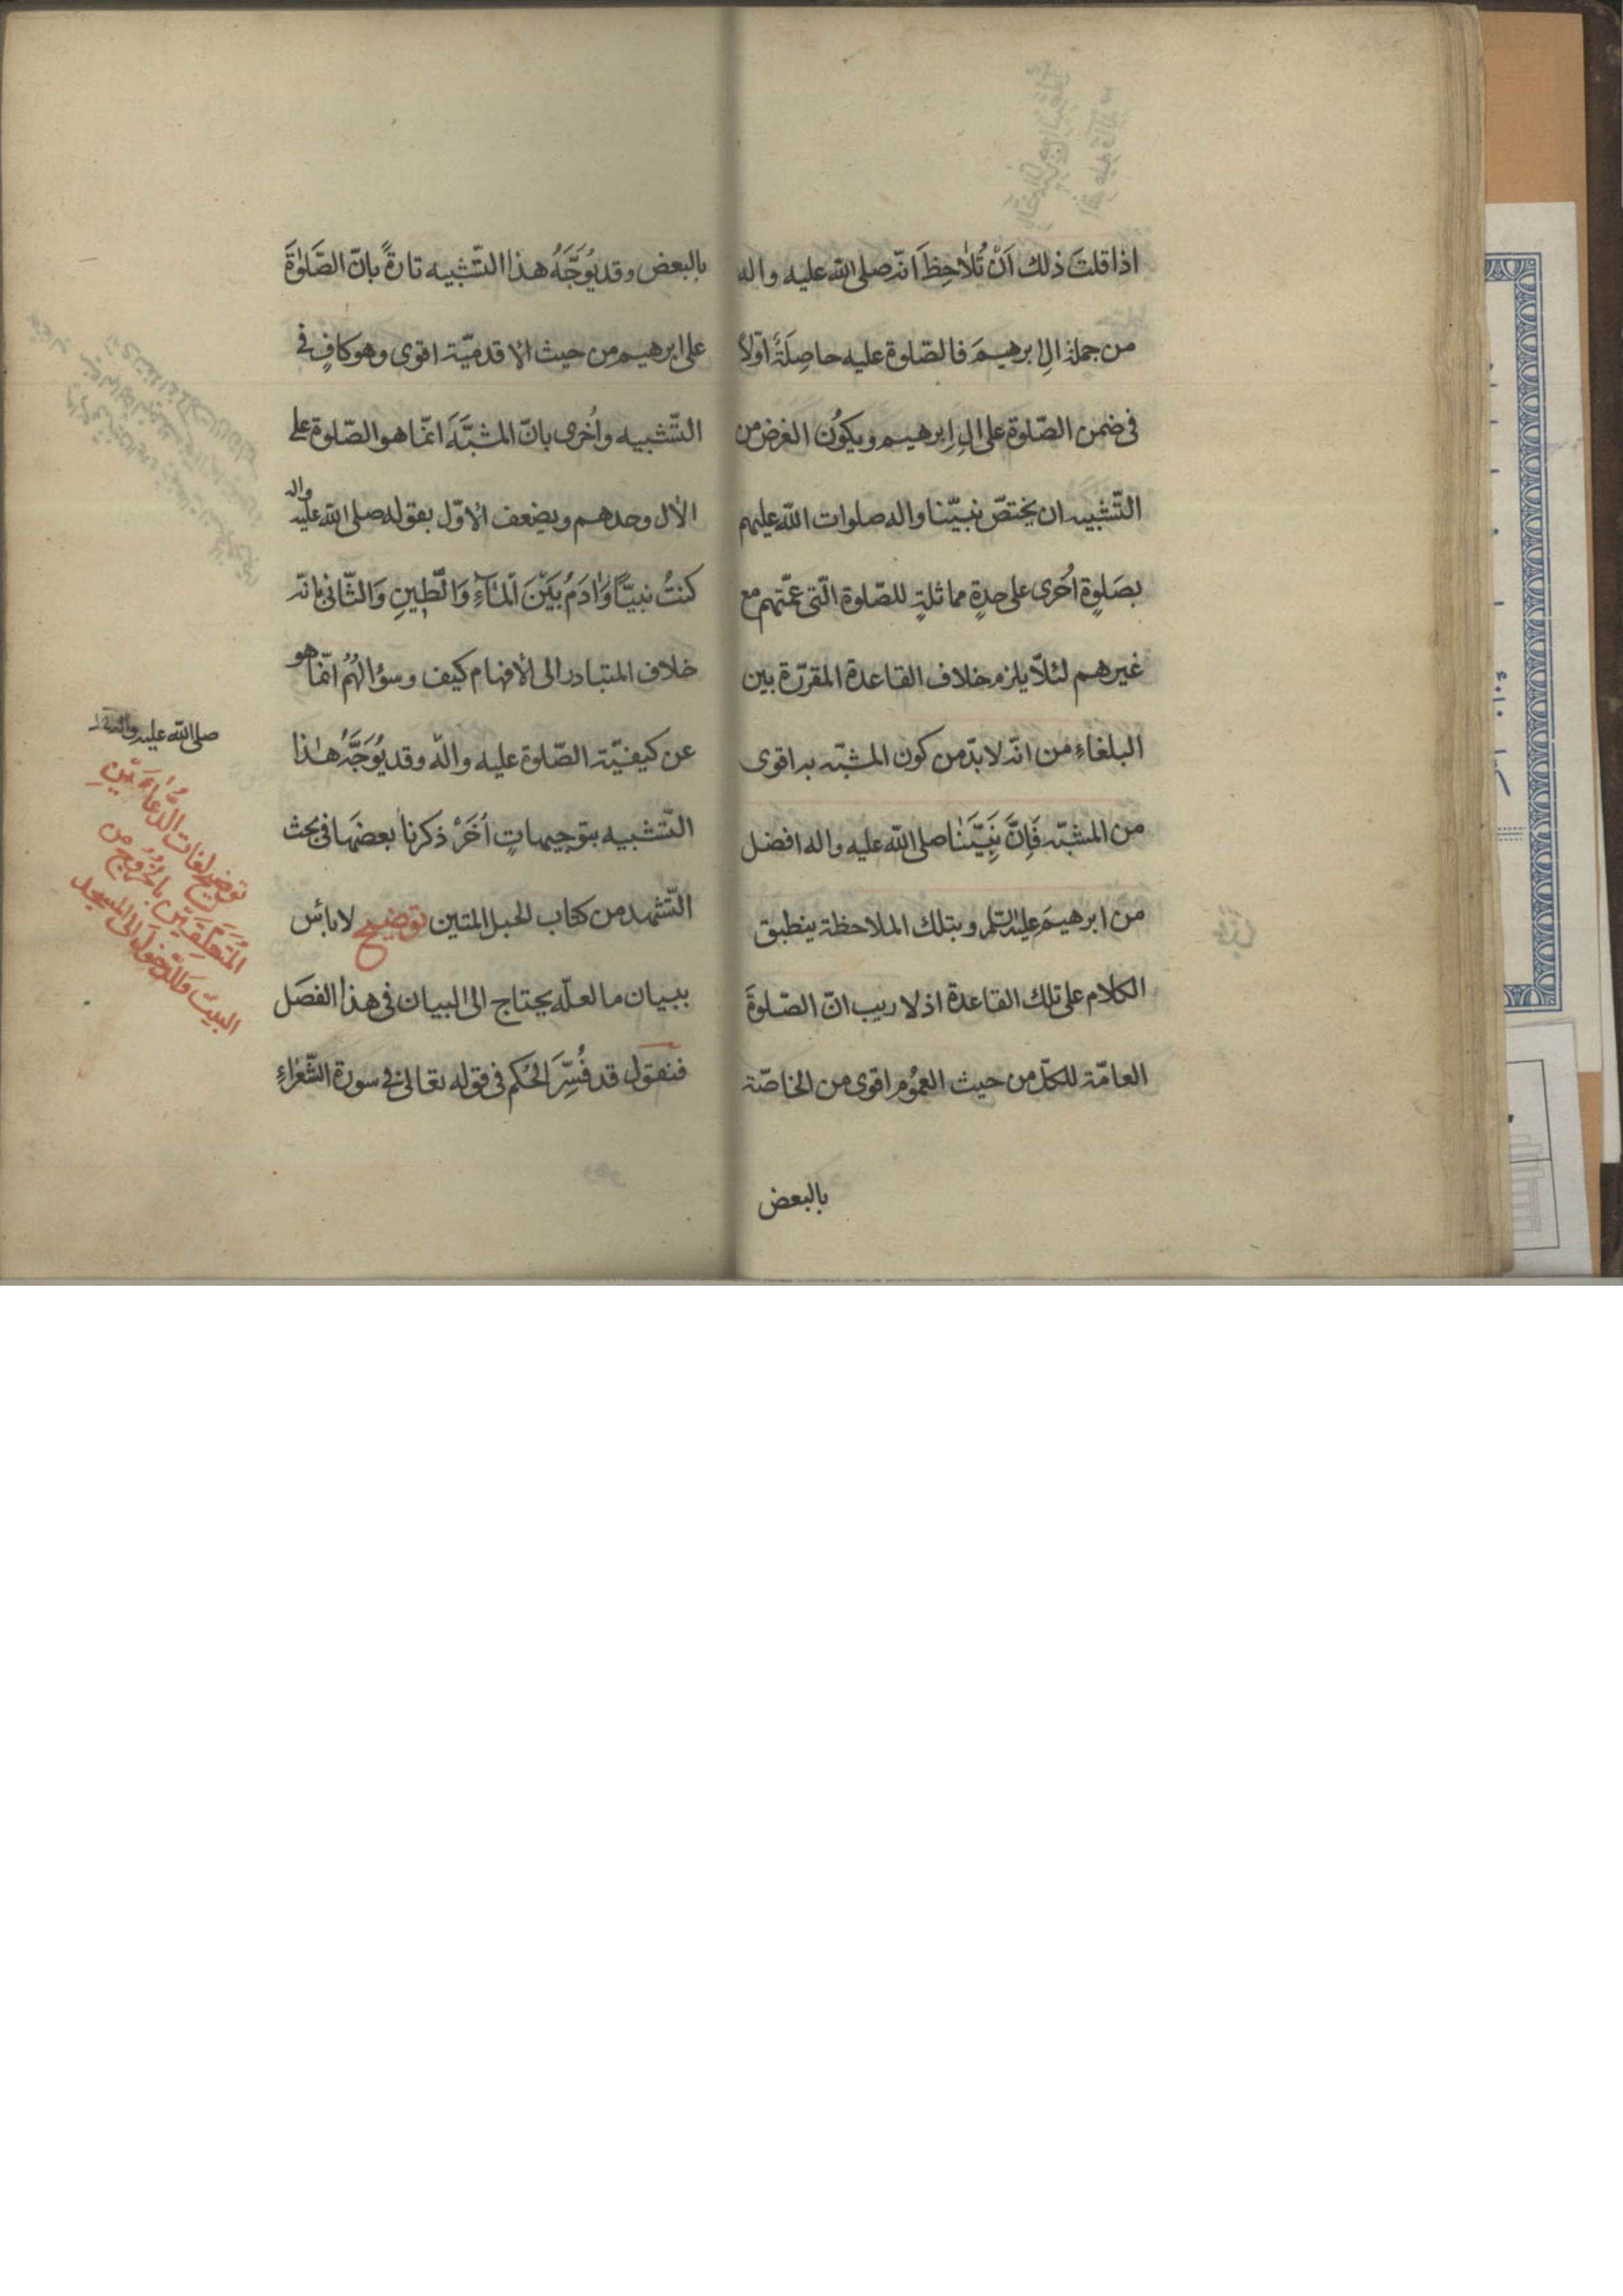 اذا قلتَ ذلك اَنْ تُلاحِظَ انّه صلى الله عليه واله
من جملة الِ ابرهيمَ فالصّلوة عليه حاصِلَةٌ اوّلاً
فى ضمن الصّلوة على الِ اِبرهيم ويكوُن الغرض من
التّشبيه ان يختصّ نبيّنا واله صلوات الله عليهم
بصَلوةٍ اُخرى على حدةٍ مماثلةٍ للصّلوة الّتى عمّتهم مع
غيرهم لئلاّ يلزم خلاف القاعدة المقرّرة بين
البلغاءِ من انّه لا بدّ من كون المشبّه به اقوى
من المشبّه فَاِنَّ نَبِيَّنَا صلى الله عليه واله افضل
من ابرهيمَ عليه السّلم وبتلك الملاحظة ينطبق
الكلام على تلك القاعدة اذ لا ريب انّ الصّلوةَ
العامّة للكلّ من حيث العمُوم اقوى من الخاصّة
بالبعض
بالبعض وقد يُوَجَّهُ هذا التّشبيه تارةً بانّ الصَّلوٰةَ
على ابرهيم من حيث الاقدميّة اقوى وهو كافٍ فى
التّشبيه واُخرى بانّ المشبَّهَ انمّا هو الصّلوة على
الال وحدهم ويضعف الاوّل بقوله صلى الله عليه واله
كنتُ نبيّاً وَاٰدَمُ بَيْنَ اَلْمَاۤءِ وَالْطّينِ وَالثّانى بانّه
خلاف المتبادر الى الافهام كيف وسؤالهُمُ انمّا هو
عن كيفيّة الصّلوة عليه واله وقد يُوَجَّهُ هٰذا
التّشبيه بتوجيهاتٍ اُخَرْ ذكرنا بعضهَا فى بحث
التّشهد من كتاب الحبل المتين توضيح لا باس
ببيان ما لعلّه يحتاج الى البيان فى هذا الفصَل
فنقول قد فُسِّرَ الحُكم فى قوله تعالى فى سورة الشّعرٰاءِ
صلى الله عليه واله
توضيح لغات الدُّعاءَيْنِ
المُتَعَلّقَيَتَيْنِ بالخُرُوجِ من
البيت وَالدّخول الى المسجد